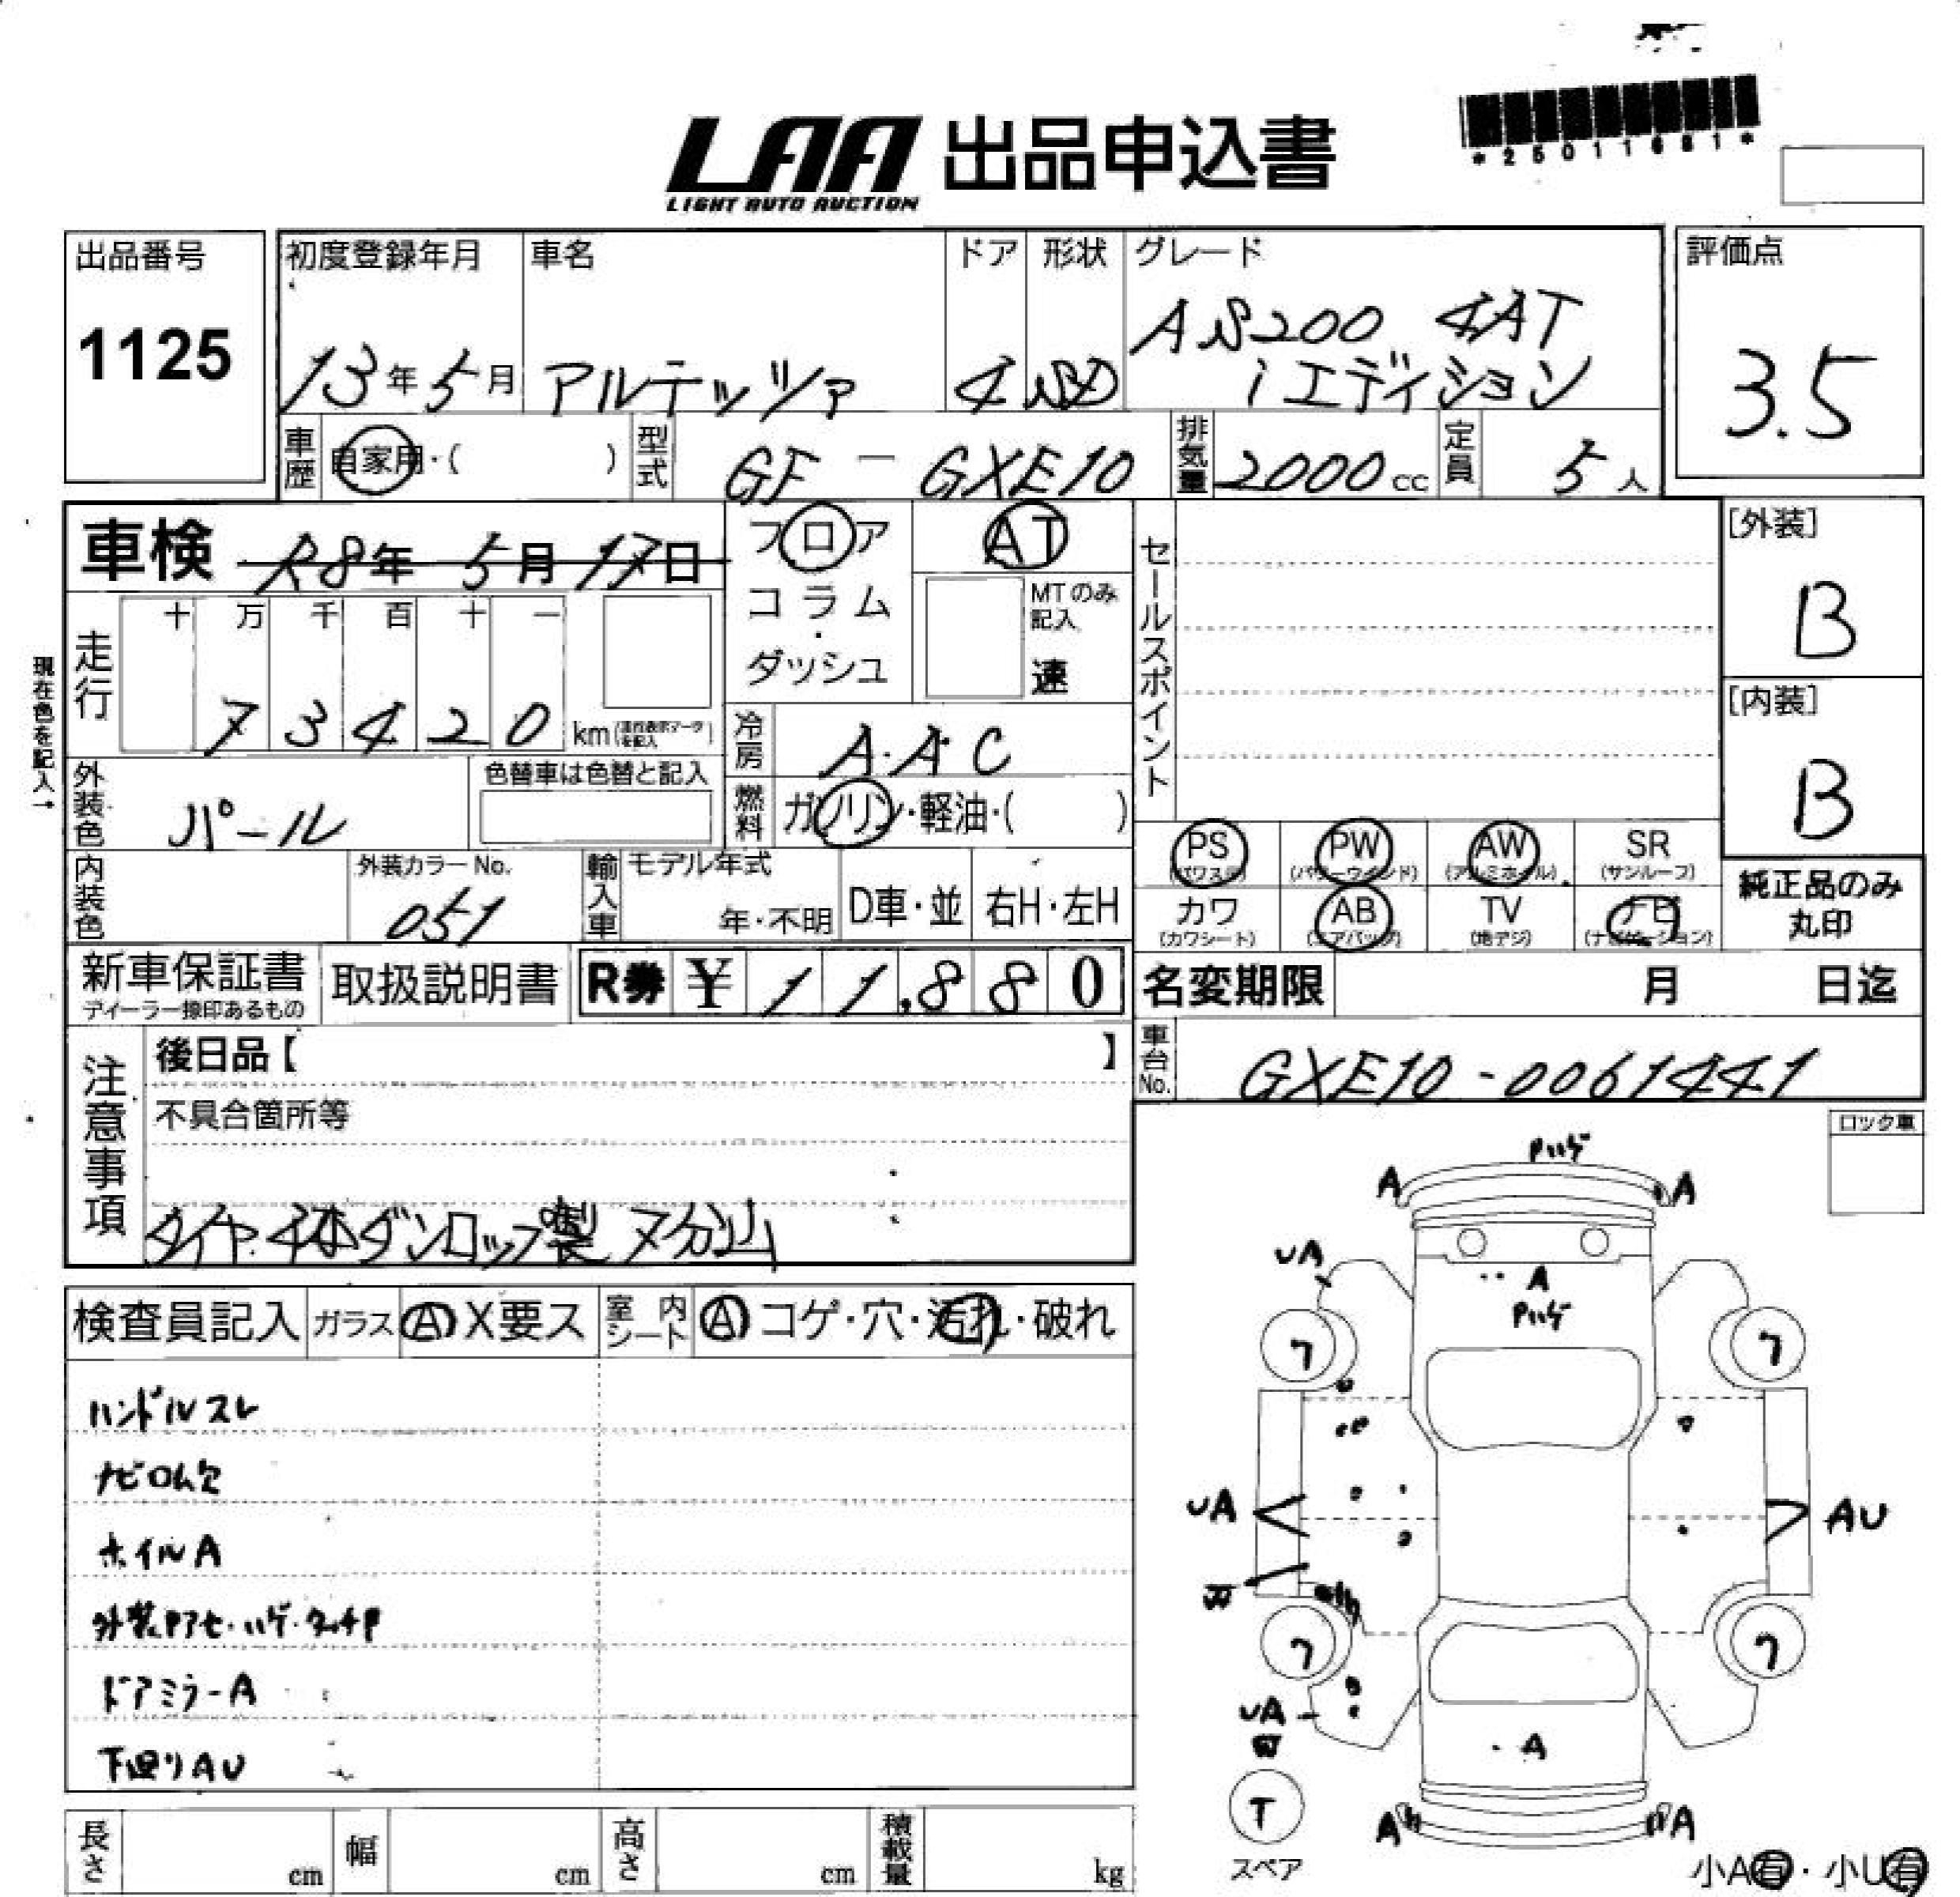 LAA 出品申込書
LIGHT AUTO AUCTION
*25011681*
出品番号
1125
初度登録年月
13年5月
車名
アルテッツァ
ドア
4
形状
SD
グレード
AS200 4AT
iエディション
評価点
3.5
車歴
自家用・( )
型式
GF - GXE10
排気量
2000cc
定員
5人
車検 R8年 5月 17日
フロア
コラム
・
ダッシュ
AT
MTのみ
記入
速
セールスポイント
[外装]
B
[内装]
B
現在色を記入→
走行
十 万 千 百 十 一
7 3 4 2 0 km
冷房
A.A C
外装色
パール
色替車は色替と記入
燃料
ガソリン・軽油・( )
PS
PW
(パワーウインド)
AW
(アルミホイル)
SR
(サンルーフ)
カワ
(カワシート)
AB
(エアバッグ)
TV
(地デジ)
ナビ
(ナビゲーション)
純正品のみ
丸印
内装色
外装カラーNo.
051
輸入車
モデル年式
年・不明
D車・並
右H・左H
新車保証書
ディーラー捺印あるもの
取扱説明書
R券 ¥ 1 1,8 8 0
名変期限 月 日迄
車台No.
GXE10-0061441
注意事項
後日品【 】
不具合箇所等
タイヤ4本ダンロップ製 7分山
ロック車
検査員記入
ガラス
A X要ス
室内シート
A コゲ・穴・汚れ・破れ
ハンドルスレ
ナビロム欠
ホイルA
外装Pアセ・ハゲ・タッチP
ドアミラーA
下廻りAU
Pハゲ
A
A
UA
A
Pハゲ
7
7
UA
AU
W
7
7
UA
W
A
T
スペア
A
A
小A有・小U有
長さ
cm
幅
cm
高さ
cm
積載量
kg